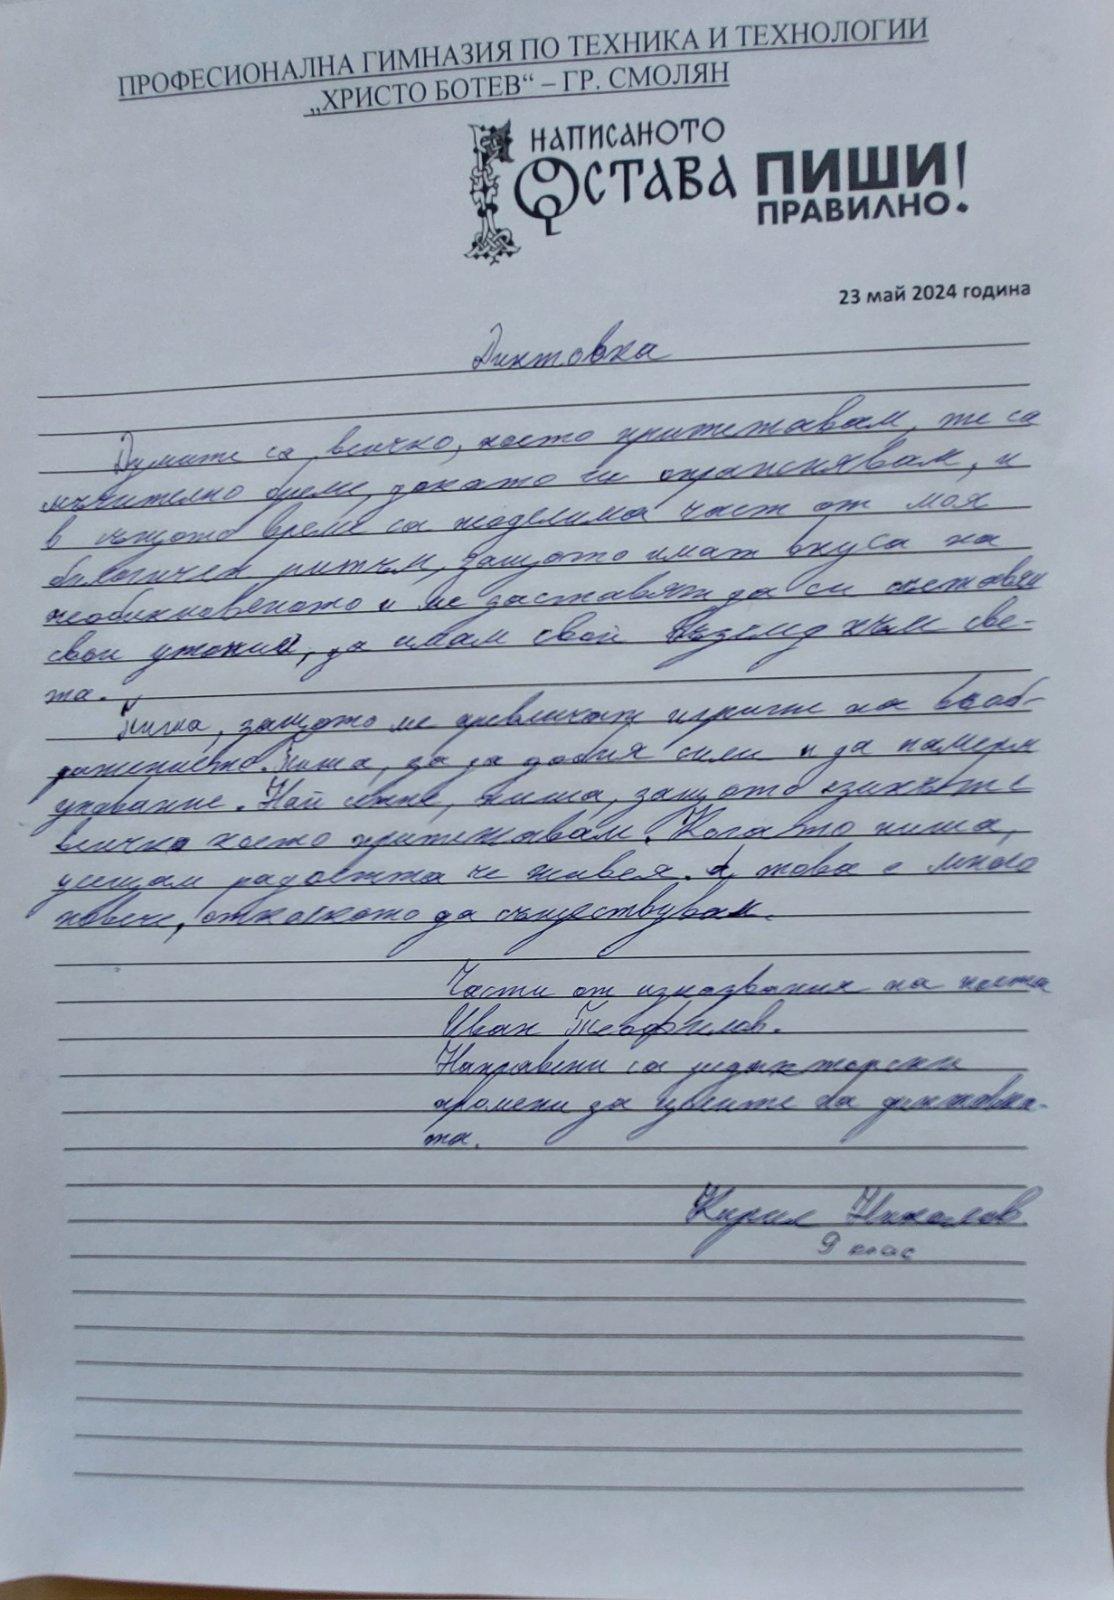 ПРОФЕСИОНАЛНА ГИМНАЗИЯ ПО ТЕХНИКА И ТЕХНОЛОГИИ
„ХРИСТО БОТЕВ“ – ГР. СМОЛЯН
НАПИСАНОТО
ОСТАВА
ПИШИ
ПРАВИЛНО!
23 май 2024 година
Диктовка
Думите са всичко, което притежавам, те са
мъчително бреме, докато ги опраснявам, и
в същото време са неделима част от моя
биологичен ритъм, защото имат вкуса на
необикновеното и ме заставят да си съставям
свои утопии, да имам свой възглед към све-
та.
Пиша, защото ме привличат игрите на въоб-
ражението. Пиша, за да добия сили и да намеря
упование. Най сетне, пиша, защото езикът е
всичко което притежавам. Когато пиша,
усещам радостта че живея. А това е много
повече, отколкото да съществувам.
Части от изказвания на поета
Иван Теофилов.
Направени са редакторски
промени за целите на диктовка-
та.
Кирил Николов
9 клас